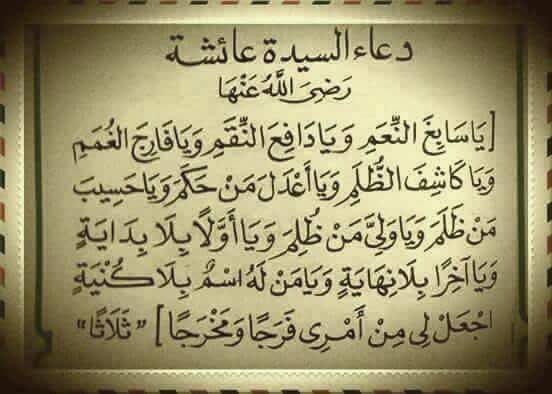 دعاء السيدة عائشة
رَضِىَ اللَّهُ عَنْهَا
[يَاسَابِغَ النِّعَمِ وَيَادَافِعَ النِّقَمِ وَيَافَارِجَ الغُمَمِ
وَيَا كَاشِفَ الظُّلَمِ وَيَا أَعْدَلَ مَنْ حَكَمَ وَيَا حَسِيبَ
مَنْ ظَلَمَ وَيَا وَلِىَّ مَنْ ظُلِمَ وَيَا أَوَّلًا بِلَا بِدَايَةٍ
وَيَا آخِرًا بِلَا نِهَايَةٍ وَيَامَنْ لَهُ اسْمٌ بِلَا كُنْيَةٍ
اجْعَلْ لِى مِنْ أَمْرِى فَرَجًا وَمَخْرَجًا] "ثَلَاثًا"